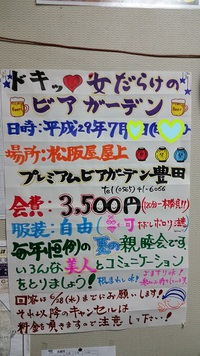 ドキッ♥女だらけの
ビアガーデン
日時:平成29年7月
場所:松阪屋屋上
プレミアムビアガーデン豊田
Tel (0565) 41-6066
会費:3,500円
服装:自由
毎年恒例の裏の親睦会です
いろんな美人とコミュニケーション
をとりましょう!
回答は6/28(水)までにお願いします!
それ以降のキャンセルは
料金を頂きますのでご注意して下さい!